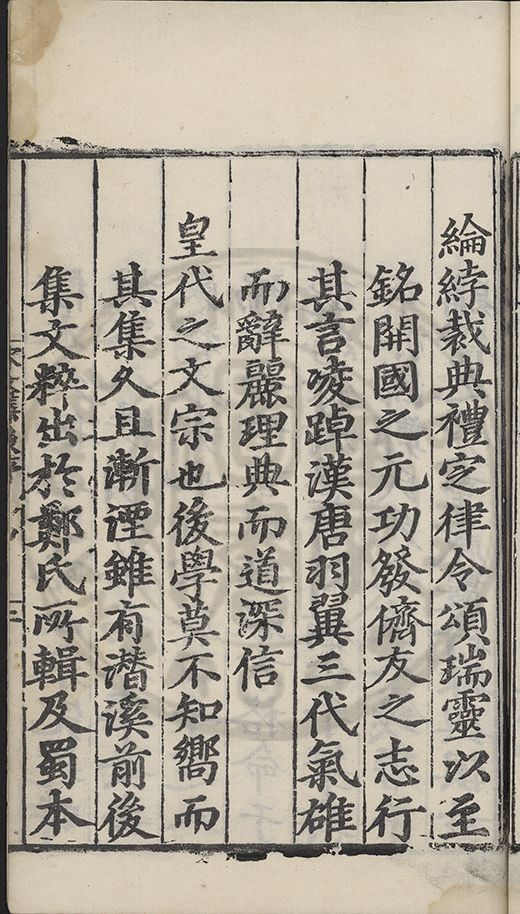 綸綍裁典禮定律令頌瑞靈以至
銘開國之元功發儕友之志行
其言凌踔漢唐羽翼三代氣雄
而辭麗理典而道深信
皇代之文宗也後學莫不知嚮而
其集久且漸湮雖有潛溪前後
集文粹出於鄭氏所輯及蜀本